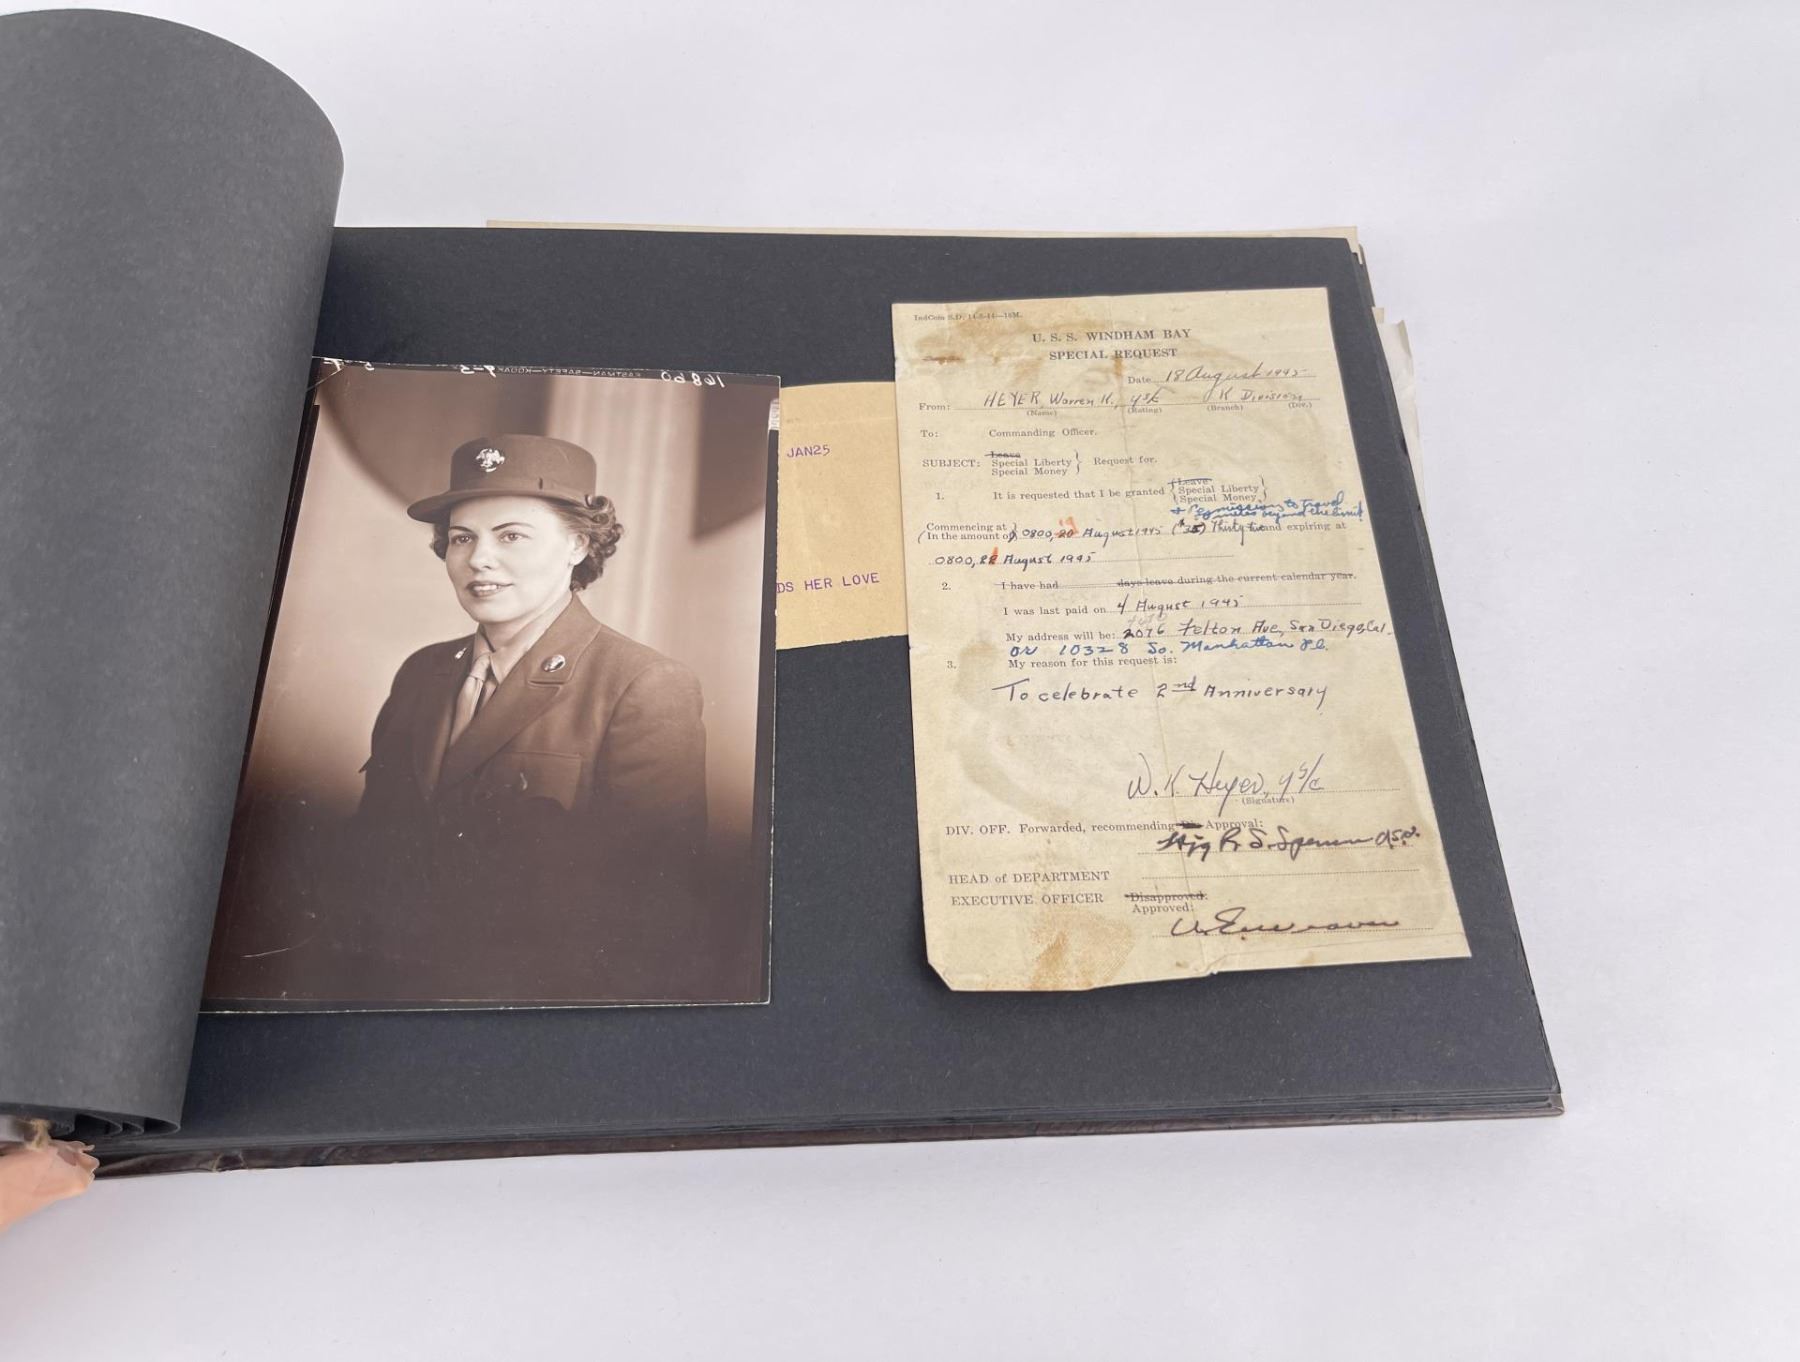 16860
EASTMAN—SAFETY—KODAK
JAN25
DS HER LOVE
U. S. S. WINDHAM BAY
SPECIAL REQUEST
Date 18 August 1945
From: HEYER, Warren K., Y3/c K Division
(Name) (Rating) (Branch) (Div.)
To: Commanding Officer.
Leave
SUBJECT: Special Liberty } Request for.
Special Money
Leave
1. It is requested that I be granted { Special Liberty }
Special Money
+ Permission to travel
beyond the limit
Commencing at
(In the amount of) 0800, 20 August 1945 ( ) Thirty and expiring at
0800, August 1945
2. I have had days leave during the current calendar year.
I was last paid on 4 August 1945
My address will be: 2076 Felton Ave, San Diego, Cal.
or 10328 So. Manhattan Pl.
3. My reason for this request is:
To celebrate 2nd Anniversary
W. K. Heyer, Y3/c
(Signature)
DIV. OFF. Forwarded, recommending Dis Approval:
HEAD of DEPARTMENT
EXECUTIVE OFFICER Disapproved:
Approved: